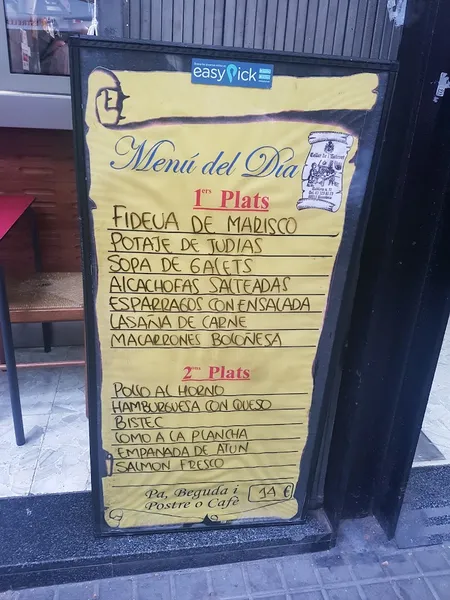 easyPick
Menú del Día
1ers Plats
FIDEUA DE MARISCO
POTAJE DE JUDIAS
SOPA DE GALETS
ALCACHOFAS SALTEADAS
ESPARRAGOS CON ENSALADA
LASAÑA DE CARNE
MACARRONES BOLOÑESA
2ons Plats
POLLO AL HORNO
HAMBURGUESA CON QUESO
BISTEC
LOMO A LA PLANCHA
EMPANADA DE ATUN
SALMON FRESCO
Pa, Beguda i
Postre o Cafè
14 €